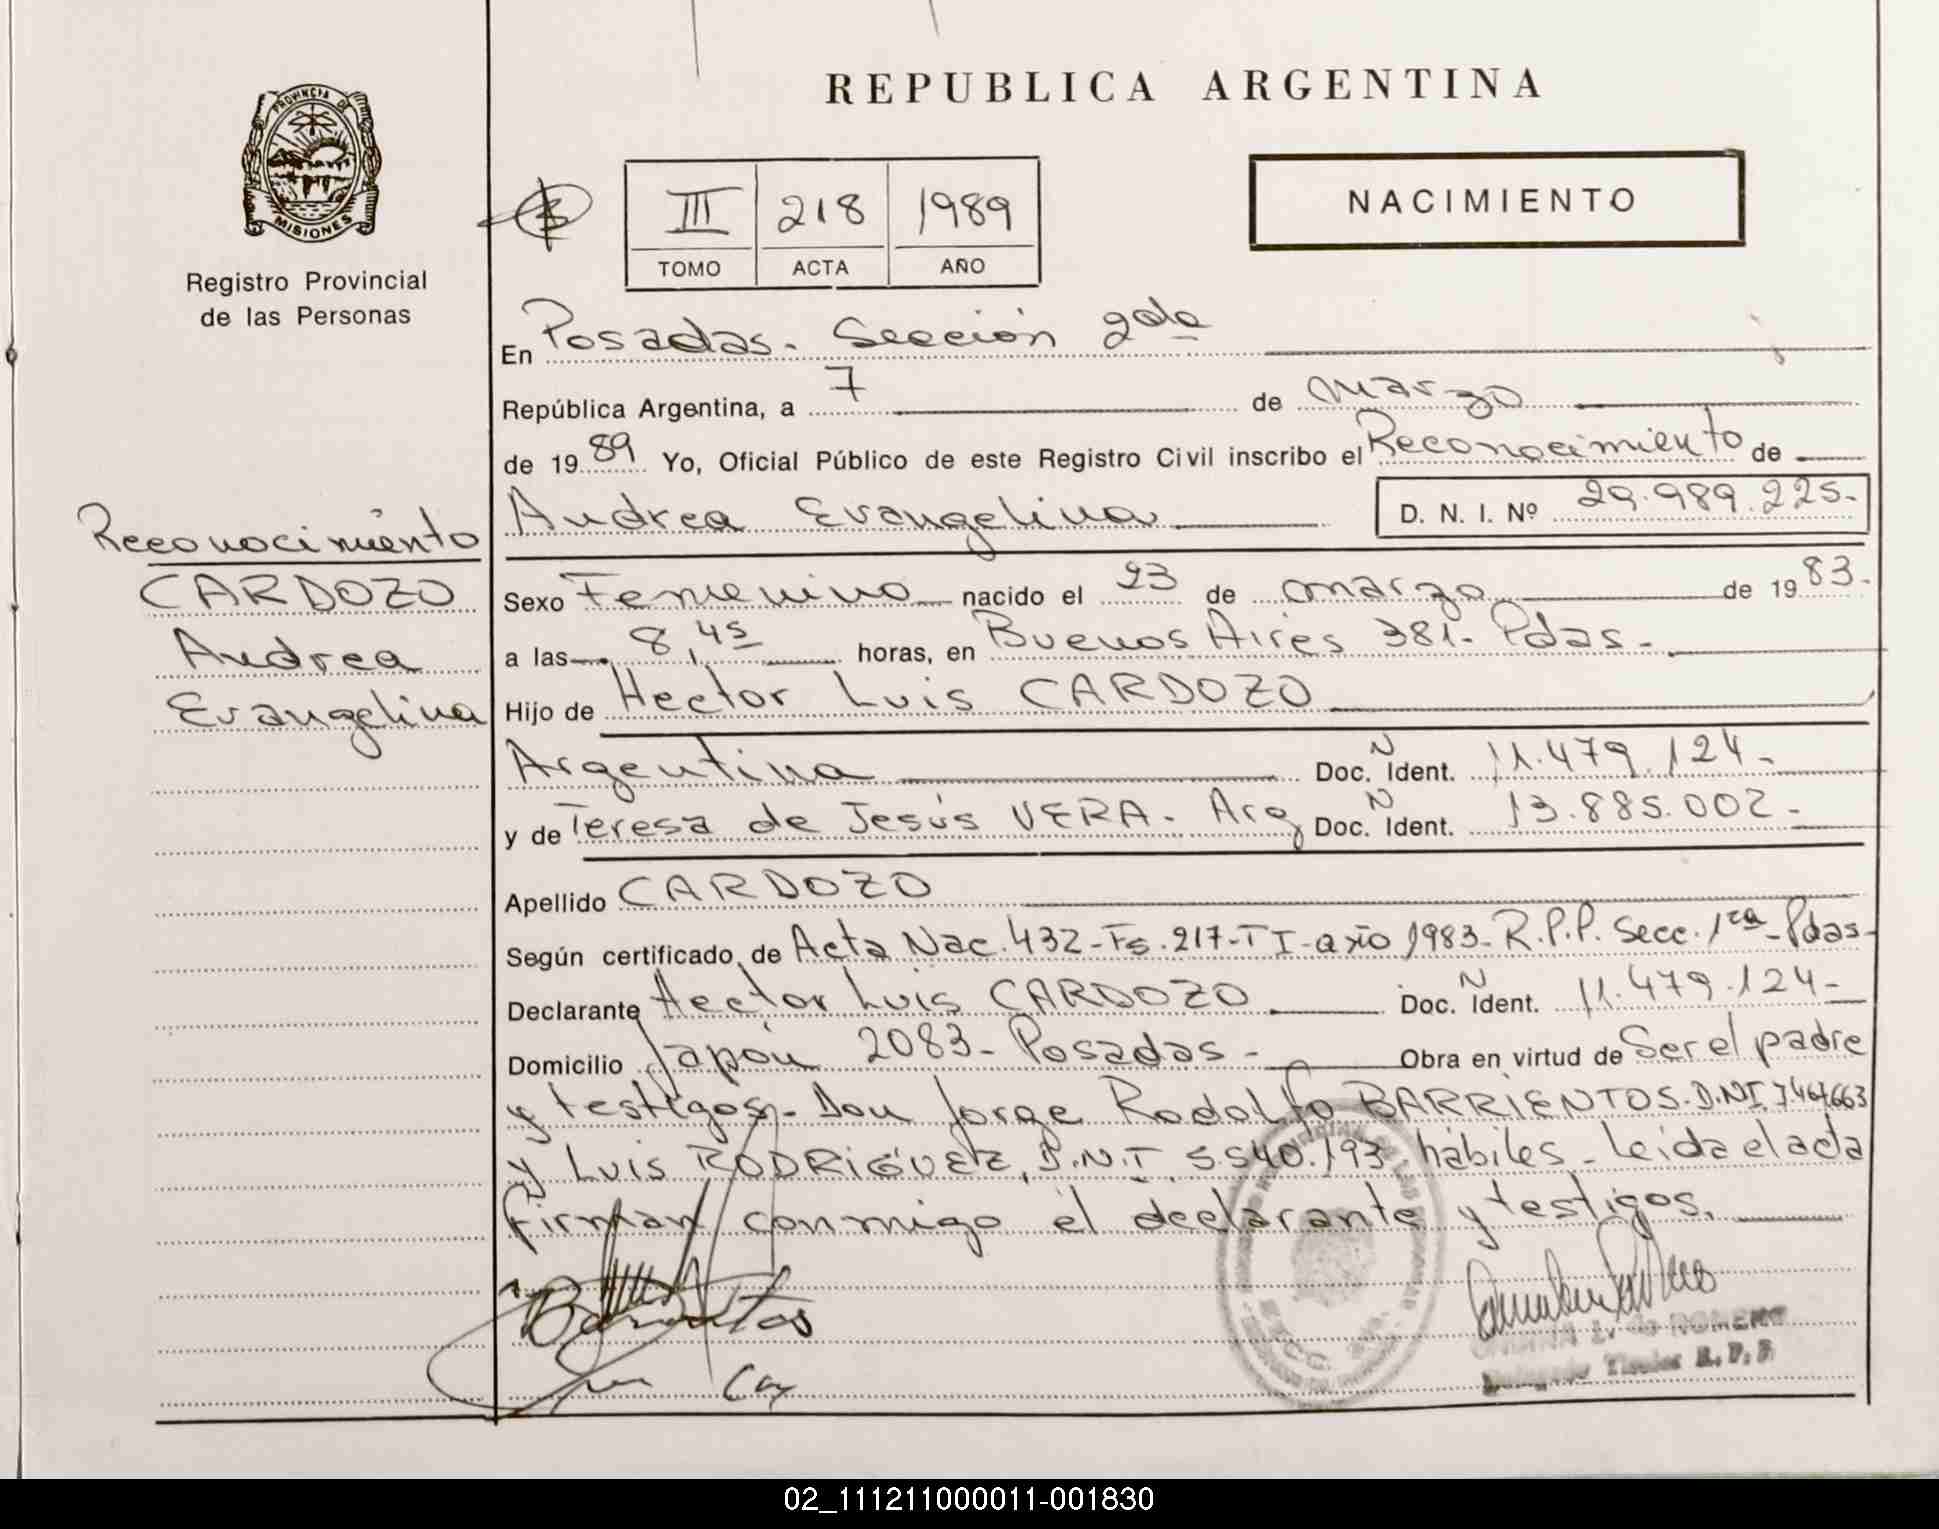 REPUBLICA ARGENTINA
PROVINCIA DE MISIONES
Registro Provincial
de las Personas
NACIMIENTO
III 218 1989
TOMO ACTA AÑO
En Posadas. Sección 2da
República Argentina, a 7 de marzo
de 1989 Yo, Oficial Público de este Registro Civil inscribo el Reconocimiento de
Andrea Evangelina D. N. I. Nº 29.989.225.
Reconocimiento
CARDOZO
Andrea
Evangelina
Sexo Femenino nacido el 23 de marzo de 1983.
a las 8,45 horas, en Buenos Aires 381. Pdas.
Hijo de Hector Luis CARDOZO
Argentina Doc. N Ident. 11.479.124.
y de Teresa de Jesús VERA. Arg Doc. N Ident. 13.885.002.
Apellido CARDOZO
Según certificado de Acta Nac. 432-Fs.217-T I-año 1983-R.P.P. Secc. 1ra-Pdas-
Declarante Hector Luis CARDOZO Doc. N Ident. 11.479.124-
Domicilio Japón 2083- Posadas- Obra en virtud de Ser el padre
y testigos- Don Jorge Rodolfo BARRIENTOS. D.NI.
y Luis RODRIGUEZ, D.N.I. 5.540.193 hábiles- Leida el acta
firman conmigo el declarante y testigos.
Barrientos
ROMERO
Titular R. P. P.
02_111211000011-001830